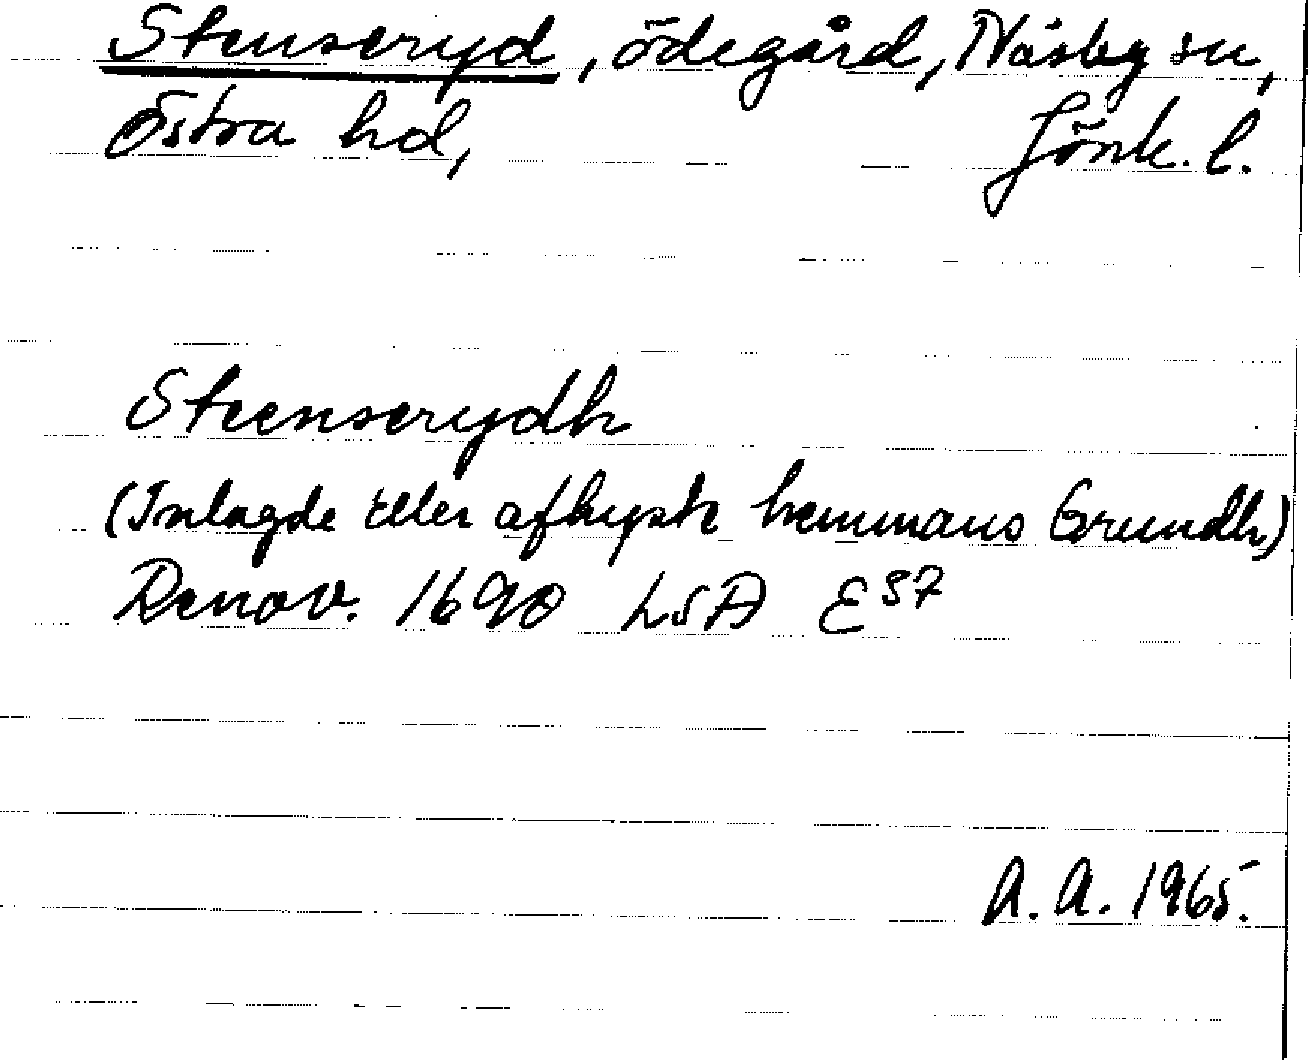 Stenseryd, ödegård, Näsby sn,
Östra hd, Jönk. l.
Steenserydh
(Inlagde eller afhyste hemmans Grundh)
Renov. 1690 LSA E 37
A. A. 1965.